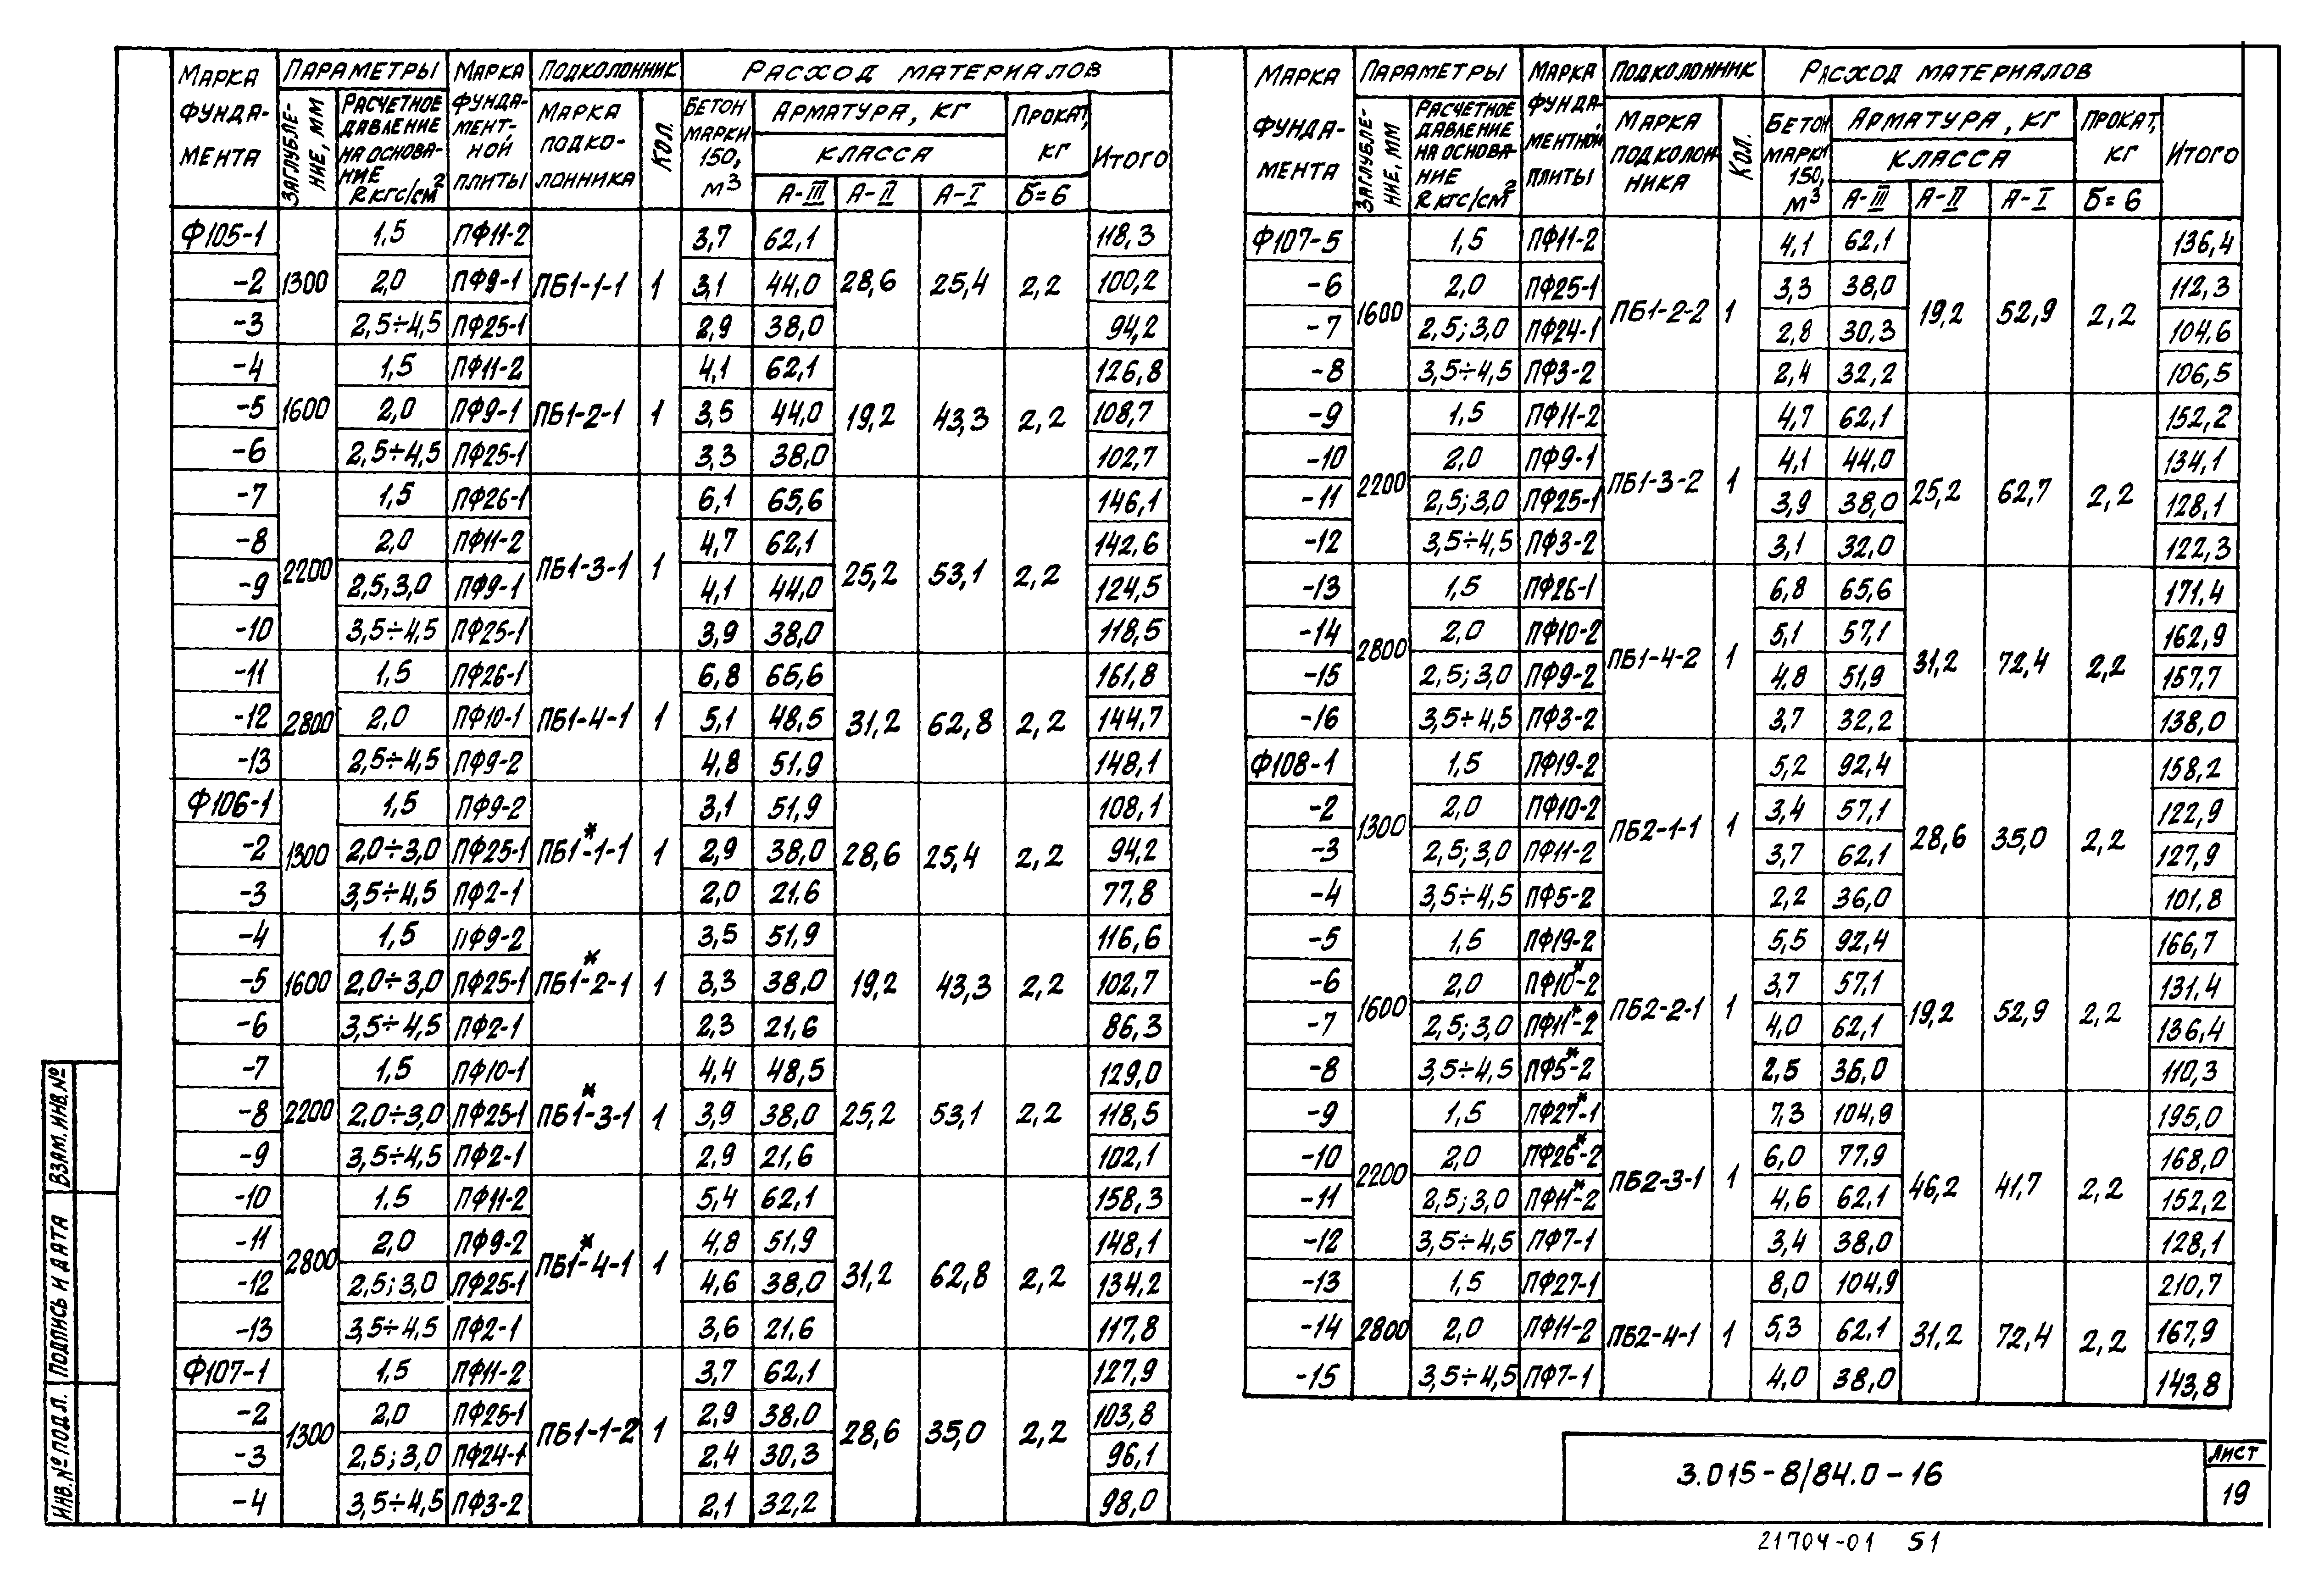 Марка фунда-мента | Параметры | Марка фунда-мент-ной плиты | Подколонник | Расход материалов
Заглубле-ние, мм | Расчетное давление на основа-ние R кгс/см² | Марка подко-лонника | Кол. | Бетон марки 150, м³ | Арматура, кг | Прокат, кг | Итого
класса
А-III | А-II | А-I | б=6
Ф105-1 | 1300 | 1,5 | ПФ11-2 | ПБ1-1-1 | 1 | 3,7 | 62,1 | 28,6 | 25,4 | 2,2 | 118,3
-2 | 2,0 | ПФ9-1 | 3,1 | 44,0 | 100,2
-3 | 2,5÷4,5 | ПФ25-1 | 2,9 | 38,0 | 94,2
-4 | 1600 | 1,5 | ПФ11-2 | ПБ1-2-1 | 1 | 4,1 | 62,1 | 19,2 | 43,3 | 2,2 | 126,8
-5 | 2,0 | ПФ9-1 | 3,5 | 44,0 | 108,7
-6 | 2,5÷4,5 | ПФ25-1 | 3,3 | 38,0 | 102,7
-7 | 2200 | 1,5 | ПФ26-1 | ПБ1-3-1 | 1 | 6,1 | 65,6 | 25,2 | 53,1 | 2,2 | 146,1
-8 | 2,0 | ПФ11-2 | 4,7 | 62,1 | 142,6
-9 | 2,5;3,0 | ПФ9-1 | 4,1 | 44,0 | 124,5
-10 | 3,5÷4,5 | ПФ25-1 | 3,9 | 38,0 | 118,5
-11 | 2800 | 1,5 | ПФ26-1 | ПБ1-4-1 | 1 | 6,8 | 65,6 | 31,2 | 62,8 | 2,2 | 161,8
-12 | 2,0 | ПФ10-1 | 5,1 | 48,5 | 144,7
-13 | 2,5÷4,5 | ПФ9-2 | 4,8 | 51,9 | 148,1
Ф106-1 | 1300 | 1,5 | ПФ9-2 | ПБ1*-1-1 | 1 | 3,1 | 51,9 | 28,6 | 25,4 | 2,2 | 108,1
-2 | 2,0÷3,0 | ПФ25-1 | 2,9 | 38,0 | 94,2
-3 | 3,5÷4,5 | ПФ2-1 | 2,0 | 21,6 | 77,8
-4 | 1600 | 1,5 | ПФ9-2 | ПБ1*-2-1 | 1 | 3,5 | 51,9 | 19,2 | 43,3 | 2,2 | 116,6
-5 | 2,0÷3,0 | ПФ25-1 | 3,3 | 38,0 | 102,7
-6 | 3,5÷4,5 | ПФ2-1 | 2,3 | 21,6 | 86,3
-7 | 2200 | 1,5 | ПФ10-1 | ПБ1*-3-1 | 1 | 4,4 | 48,5 | 25,2 | 53,1 | 2,2 | 129,0
-8 | 2,0÷3,0 | ПФ25-1 | 3,9 | 38,0 | 118,5
-9 | 3,5÷4,5 | ПФ2-1 | 2,9 | 21,6 | 102,1
-10 | 2800 | 1,5 | ПФ11-2 | ПБ1*-4-1 | 1 | 5,4 | 62,1 | 31,2 | 62,8 | 2,2 | 158,3
-11 | 2,0 | ПФ9-2 | 4,8 | 51,9 | 148,1
-12 | 2,5;3,0 | ПФ25-1 | 4,6 | 38,0 | 134,2
-13 | 3,5÷4,5 | ПФ2-1 | 3,6 | 21,6 | 117,8
Ф107-1 | 1300 | 1,5 | ПФ11-2 | ПБ1-1-2 | 1 | 3,7 | 62,1 | 28,6 | 35,0 | 2,2 | 127,9
-2 | 2,0 | ПФ25-1 | 2,9 | 38,0 | 103,8
-3 | 2,5;3,0 | ПФ24-1 | 2,4 | 30,3 | 96,1
-4 | 3,5÷4,5 | ПФ3-2 | 2,1 | 32,2 | 98,0
Марка фунда-мента | Параметры | Марка фунда-ментной плиты | Подколонник | Расход материалов
Заглубле-ние, мм | Расчетное давление на основа-ние R кгс/см² | Марка подколон-ника | Кол. | Бетон марки 150, м³ | Арматура, кг | Прокат, кг | Итого
класса
А-III | А-II | А-I | б=6
Ф107-5 | 1600 | 1,5 | ПФ11-2 | ПБ1-2-2 | 1 | 4,1 | 62,1 | 19,2 | 52,9 | 2,2 | 136,4
-6 | 2,0 | ПФ25-1 | 3,3 | 38,0 | 112,3
-7 | 2,5;3,0 | ПФ24-1 | 2,8 | 30,3 | 104,6
-8 | 3,5÷4,5 | ПФ3-2 | 2,4 | 32,2 | 106,5
-9 | 2200 | 1,5 | ПФ11-2 | ПБ1-3-2 | 1 | 4,7 | 62,1 | 25,2 | 62,7 | 2,2 | 152,2
-10 | 2,0 | ПФ9-1 | 4,1 | 44,0 | 134,1
-11 | 2,5;3,0 | ПФ25-1 | 3,9 | 38,0 | 128,1
-12 | 3,5÷4,5 | ПФ3-2 | 3,1 | 32,0 | 122,3
-13 | 2800 | 1,5 | ПФ26-1 | ПБ1-4-2 | 1 | 6,8 | 65,6 | 31,2 | 72,4 | 2,2 | 171,4
-14 | 2,0 | ПФ10-2 | 5,1 | 57,1 | 162,9
-15 | 2,5;3,0 | ПФ9-2 | 4,8 | 51,9 | 157,7
-16 | 3,5÷4,5 | ПФ3-2 | 3,7 | 32,2 | 138,0
Ф108-1 | 1300 | 1,5 | ПФ19-2 | ПБ2-1-1 | 1 | 5,2 | 92,4 | 28,6 | 35,0 | 2,2 | 158,2
-2 | 2,0 | ПФ10-2 | 3,4 | 57,1 | 122,9
-3 | 2,5;3,0 | ПФ11-2 | 3,7 | 62,1 | 127,9
-4 | 3,5÷4,5 | ПФ5-2 | 2,2 | 36,0 | 101,8
-5 | 1600 | 1,5 | ПФ19-2 | ПБ2-2-1 | 1 | 5,5 | 92,4 | 19,2 | 52,9 | 2,2 | 166,7
-6 | 2,0 | ПФ10*-2 | 3,7 | 57,1 | 131,4
-7 | 2,5;3,0 | ПФ11*-2 | 4,0 | 62,1 | 136,4
-8 | 3,5÷4,5 | ПФ5*-2 | 2,5 | 36,0 | 110,3
-9 | 2200 | 1,5 | ПФ27*-1 | ПБ2-3-1 | 1 | 7,3 | 104,9 | 46,2 | 41,7 | 2,2 | 195,0
-10 | 2,0 | ПФ26*-2 | 6,0 | 77,9 | 168,0
-11 | 2,5;3,0 | ПФ11*-2 | 4,6 | 62,1 | 152,2
-12 | 3,5÷4,5 | ПФ7-1 | 3,4 | 38,0 | 128,1
-13 | 2800 | 1,5 | ПФ27-1 | ПБ2-4-1 | 1 | 8,0 | 104,9 | 31,2 | 72,4 | 2,2 | 210,7
-14 | 2,0 | ПФ11-2 | 5,3 | 62,1 | 167,9
-15 | 3,5÷4,5 | ПФ7-1 | 4,0 | 38,0 | 143,8
Взам. инв. №
Подпись и дата
Инв. № подл.
3.015-8/84.0-16
Лист
19
21704-01 51